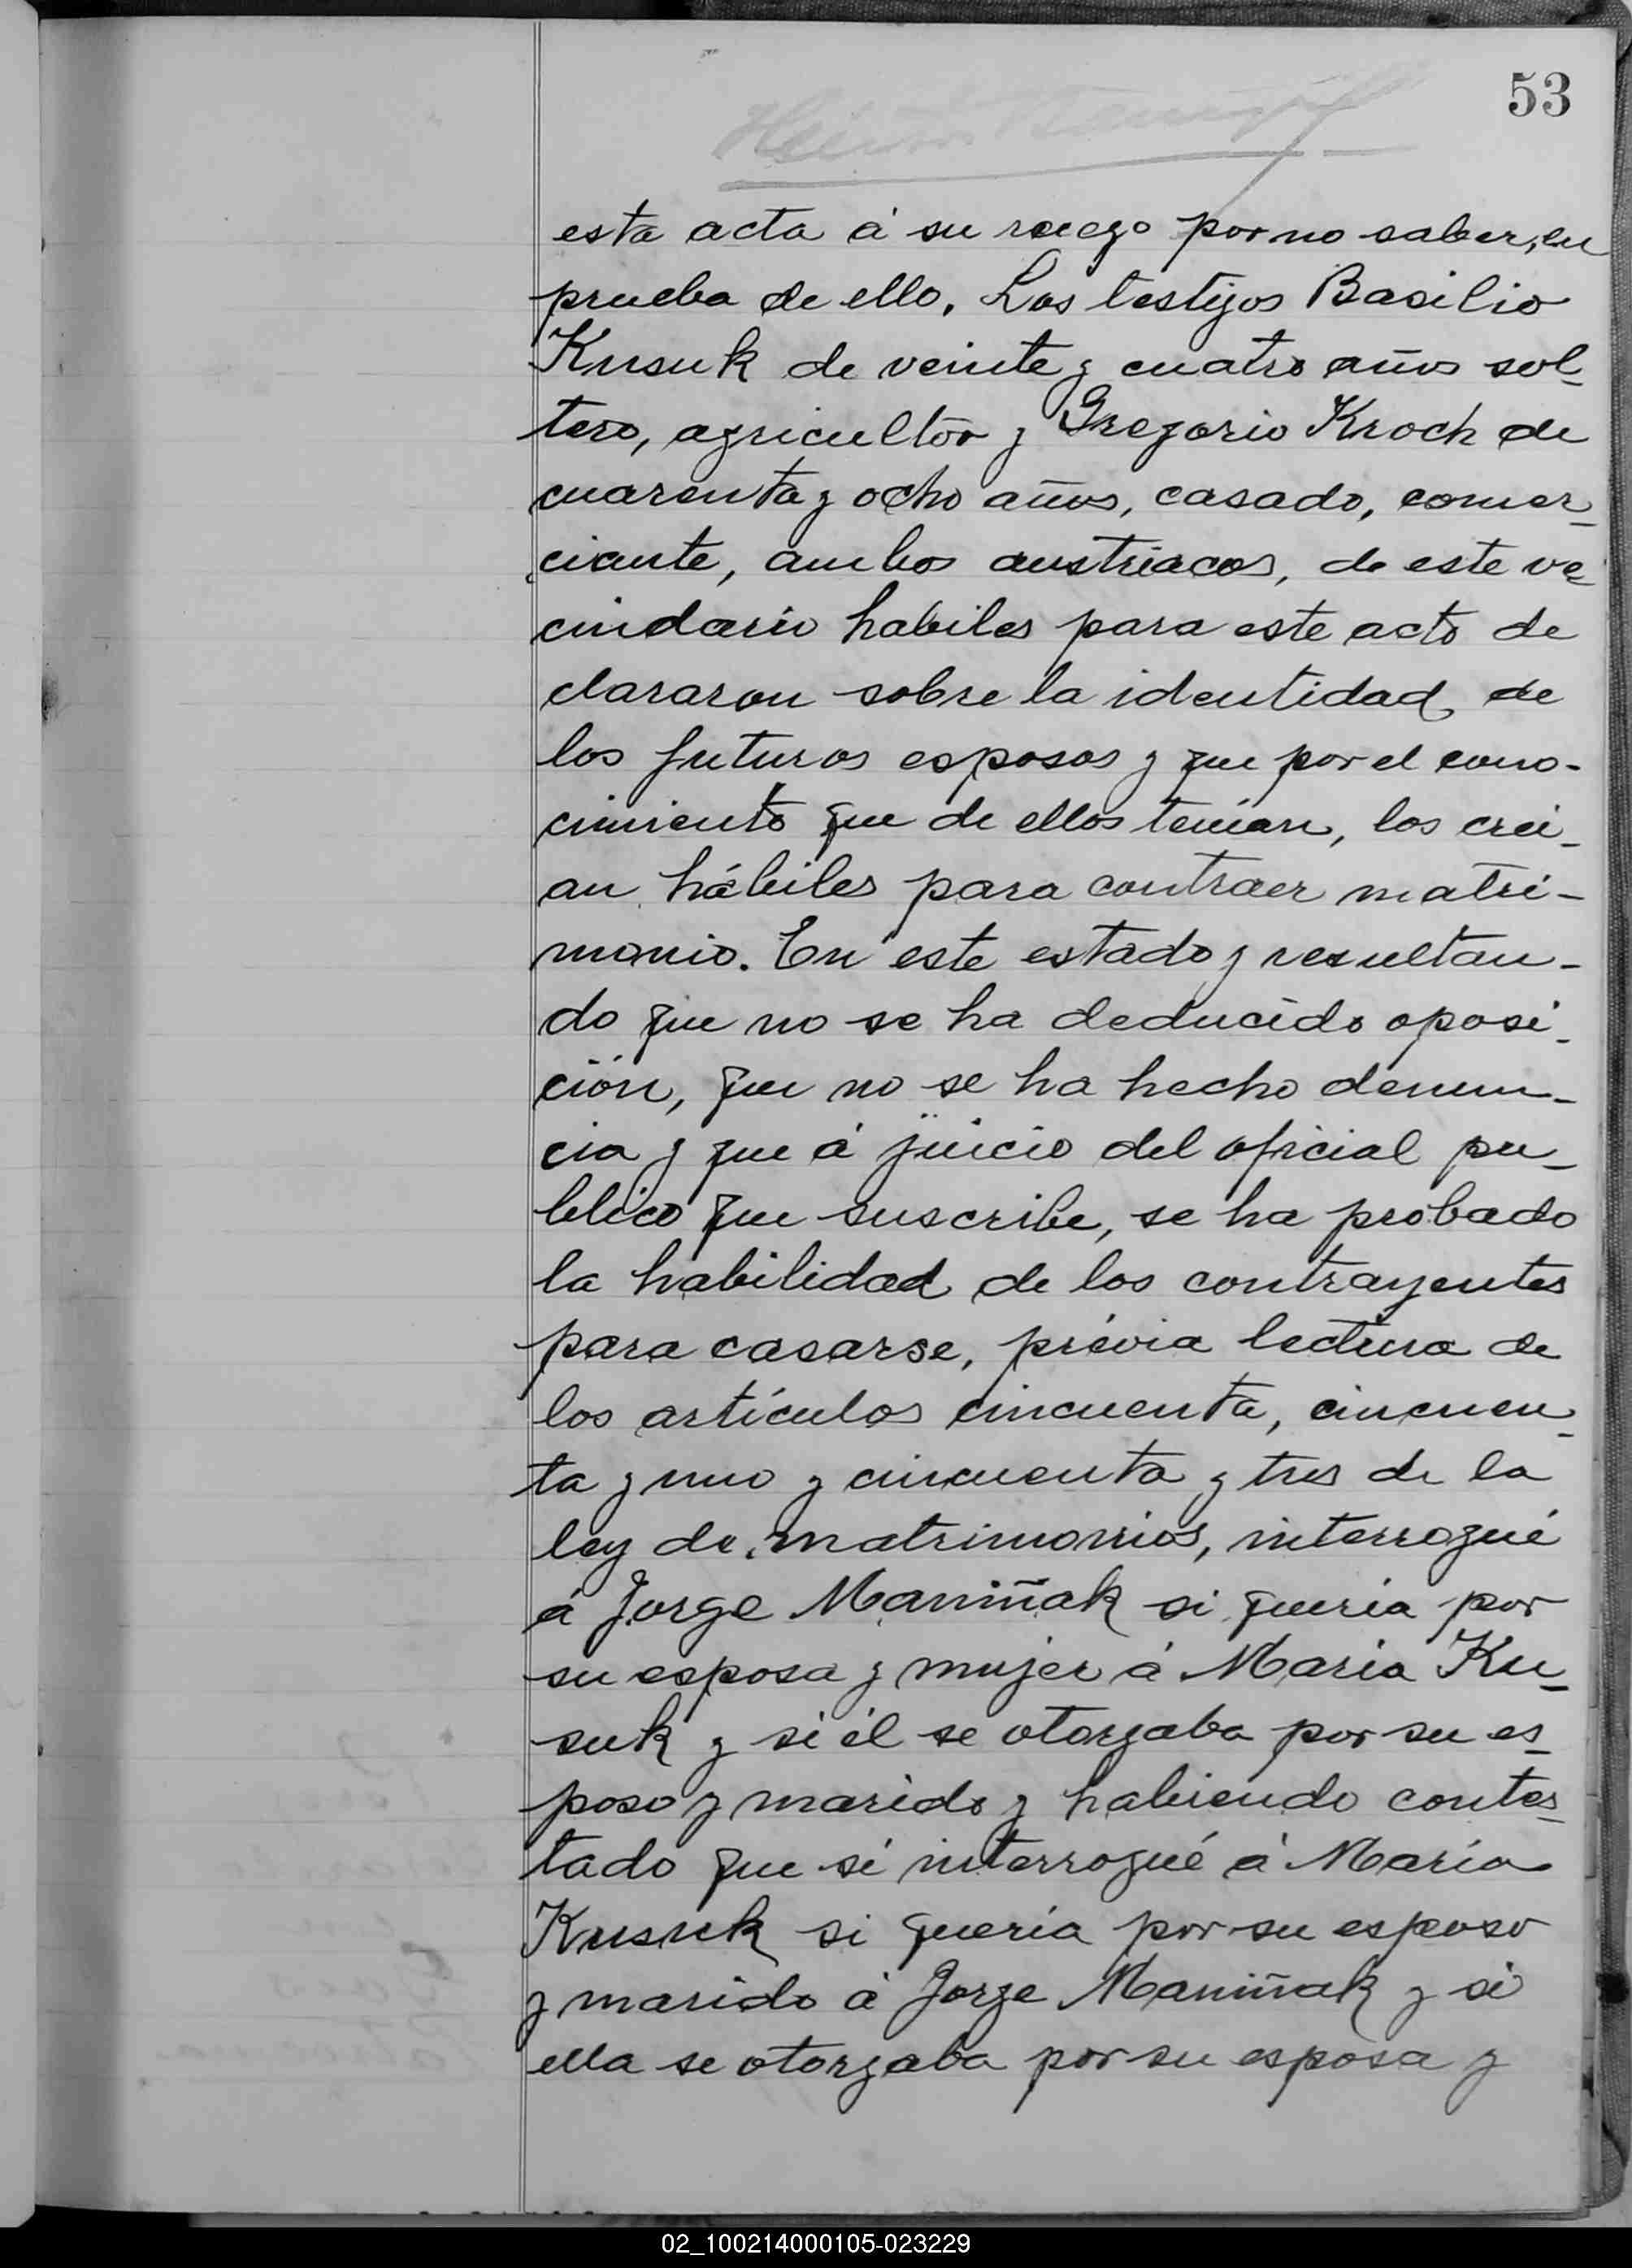 53
esta acta á su ruego por no saber, en
prueba de ello. Los testigos Basilio
Kusuk de veinte y cuatro años sol-
tero, agricultor y Gregorio Kroch de
cuarenta y ocho años, casado, comer-
ciante, ambos austriacos, de este ve-
cindario habiles para este acto de
clararon sobre la identidad de
los futuros esposos y que por el cono-
cimiento que de ellos tenían, los crei-
an hábiles para contraer matri-
monio. En este estado y resultan-
do que no se ha deducido oposi-
ción, que no se ha hecho denun-
cia y que á juicio del oficial pu-
blico que suscribe, se ha probado
la habilidad de los contrayentes
para casarse, prévia lectura de
los artículos cincuenta, cincuen-
ta y uno y cincuenta y tres de la
ley de matrimonios, interrogué
á Jorge Maniñak si quería por
su esposa y mujer á María Ku-
suk y si él se otorgaba por su es-
poso y marido y habiendo contes-
tado que sí interrogué á María
Kusuk si quería por su esposo
y marido á Jorge Maniñak y si
ella se otorgaba por su esposa y
02_100214000105-023229